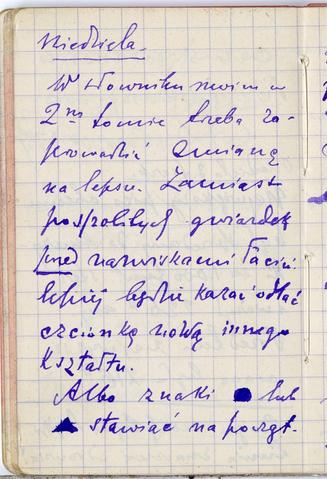 Niedziela.
W słowniku moim w
2gim tomie trzeba za-
prowadzić zmianę
na lepsze. Zamiast
pospolitych gwiazdek
przed nazwiskami łaciń.
lepiej będzie kazać odlać
czcionkę nową innego
kształtu.
Albo znaki ● lub
▲ stawiać na począt.